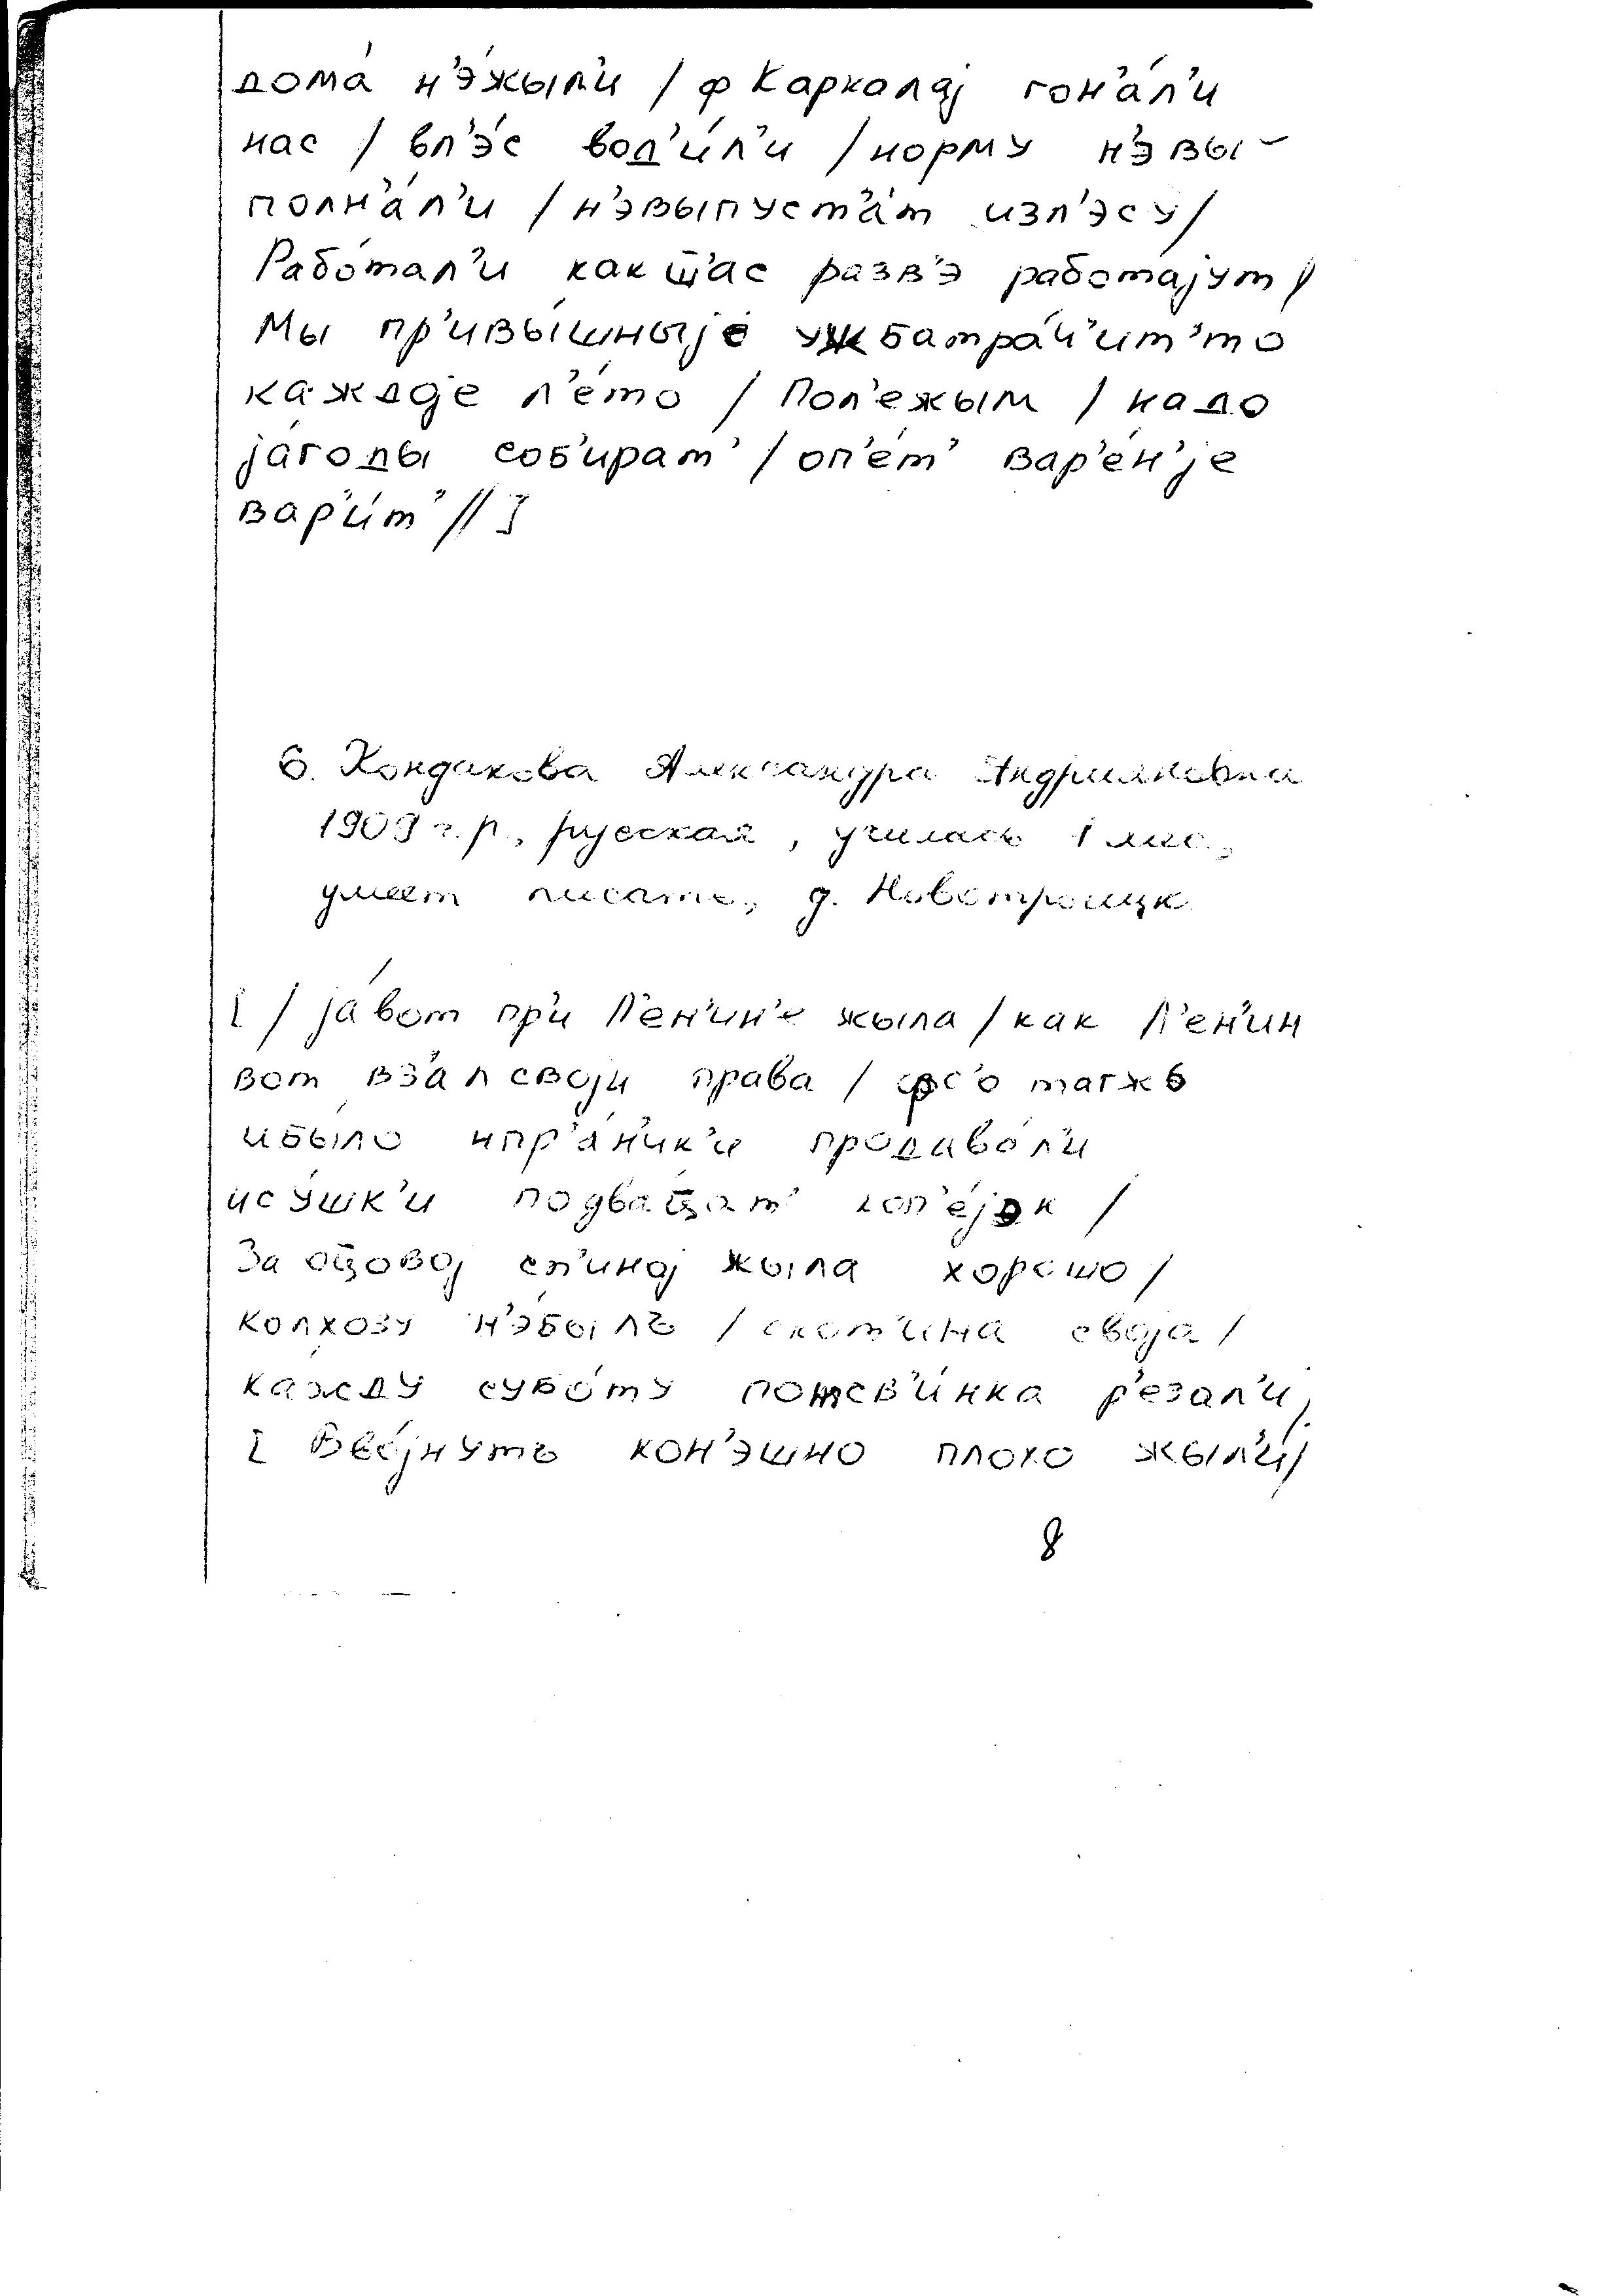 дома́ н'э́жыл'и / ф Карколај гон'а́л'и
нас / вл'э́с вод'и́л'и / норму н'э вы-
полн'а́л'и / н'эвыпуст'а́т изл'эсу /
Рабо́тал'и как ш'ас разв'э работајут /
Мы пр'ивы́шныје ужбатра́ч'ит'то
каждје л'е́то / Пол'ежым / надо
ја́годы соб'ират' / оп'е́т' вар'е́н'је
вар'и́т' // ]
6. Кондакова Александра Андрияновна
1909 г.р., русская, училась 1 мес.,
умеет писать, д. Новотроицк
[ / ја́вот пр'и Л'ен'ин'е жыла / как Л'ен'ин
вот вз'ал своји права / фс'о тагжъ
ибы́ло ипр'а́н'ик'и продава́л'и
ису́шк'и подвац̄ат' коп'е́јэк /
За оц̄овој сп'иној жыла хорошо /
колхозу н'э́былъ / скот'ина својa /
ка́жду субо́ту пожсв'и́нка р'езал'и /
[ Вво́јнутъ кон'эшно плохо жыл'и /
8